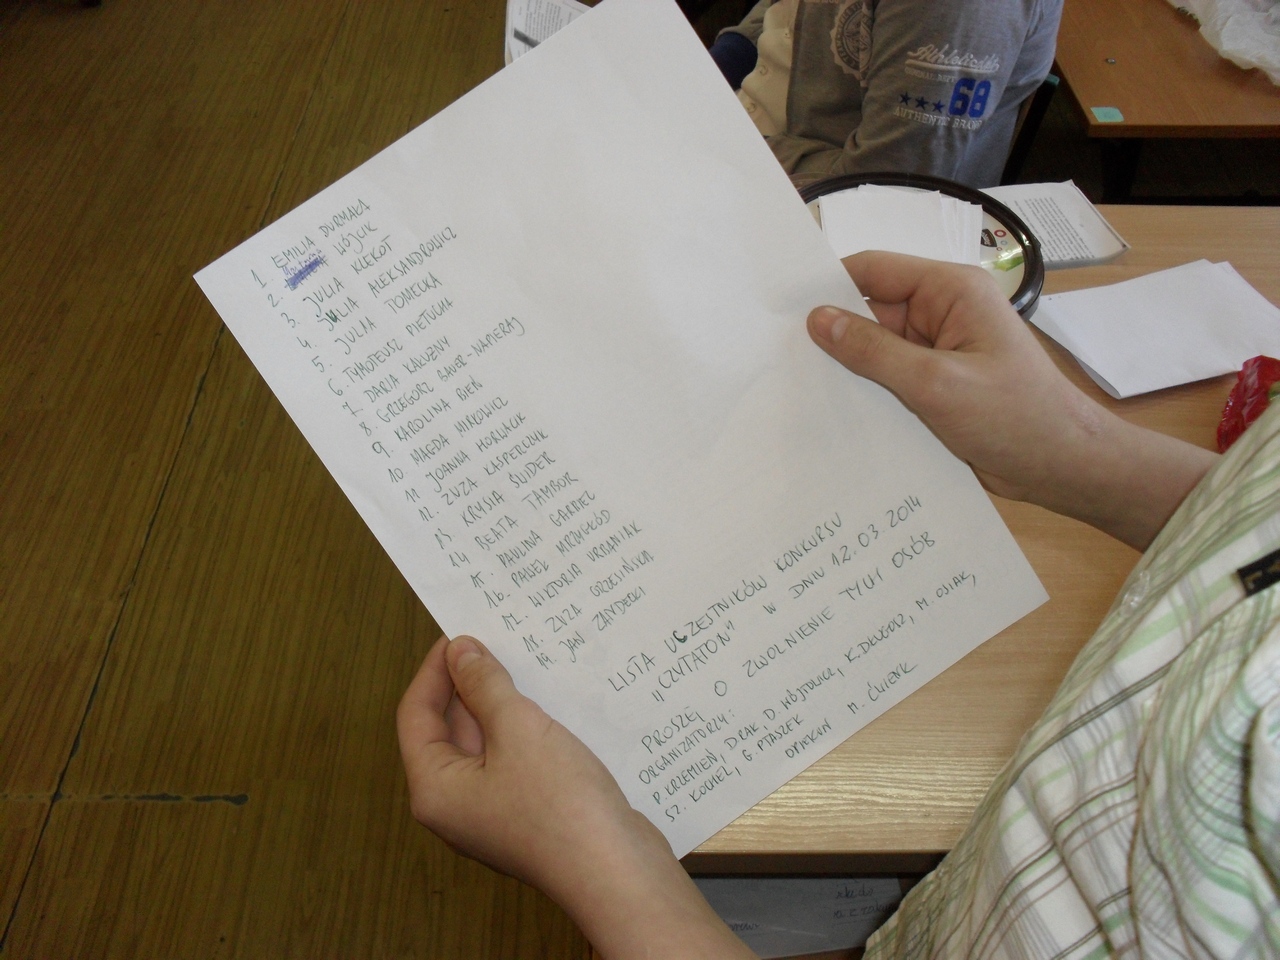 1. EMILIA DURMAŁA
2. WÓJCIK
3. JULIA KLEKOT
4. JULIA ALEKSANDROWICZ
5. JULIA TOMECKA
6. TYMOTEUSZ PIETUCHA
7. DARIA KAŁUZNY
8. GRZEGORZ BAUER-NAPIERAJ
9. KAROLINA BIEŃ
10. MAGDA MIKOWICZ
11. JOANNA HORLACIK
12. ZUZA KASPERCZYK
13. KRYSIA ŚWIDER
14 BEATA TAMBOR
15. PAULINA GABRIEL
16. PAWEŁ MRZYGŁÓD
17. WIKTORIA URBANIAK
18. ZUZA GRZESIŃSKA
19. JAN ZANDECKI
LISTA UCZESTNIKÓW KONKURSU
"CZYTATON" W DNIU 12.03.2014
PROSZĘ O ZWOLNIENIE TYCH OSÓB
ORGANIZATORZY:
P. KRZEMIEŃ, D. RAK, D. WÓJTOWICZ, K. DŁUGOSZ, M. OSIAK,
SZ. KOCHEL, G. PTASZEK
OPIEKUN M. ĆWIERK
Athletic
68
AUTHENTIC BRAND